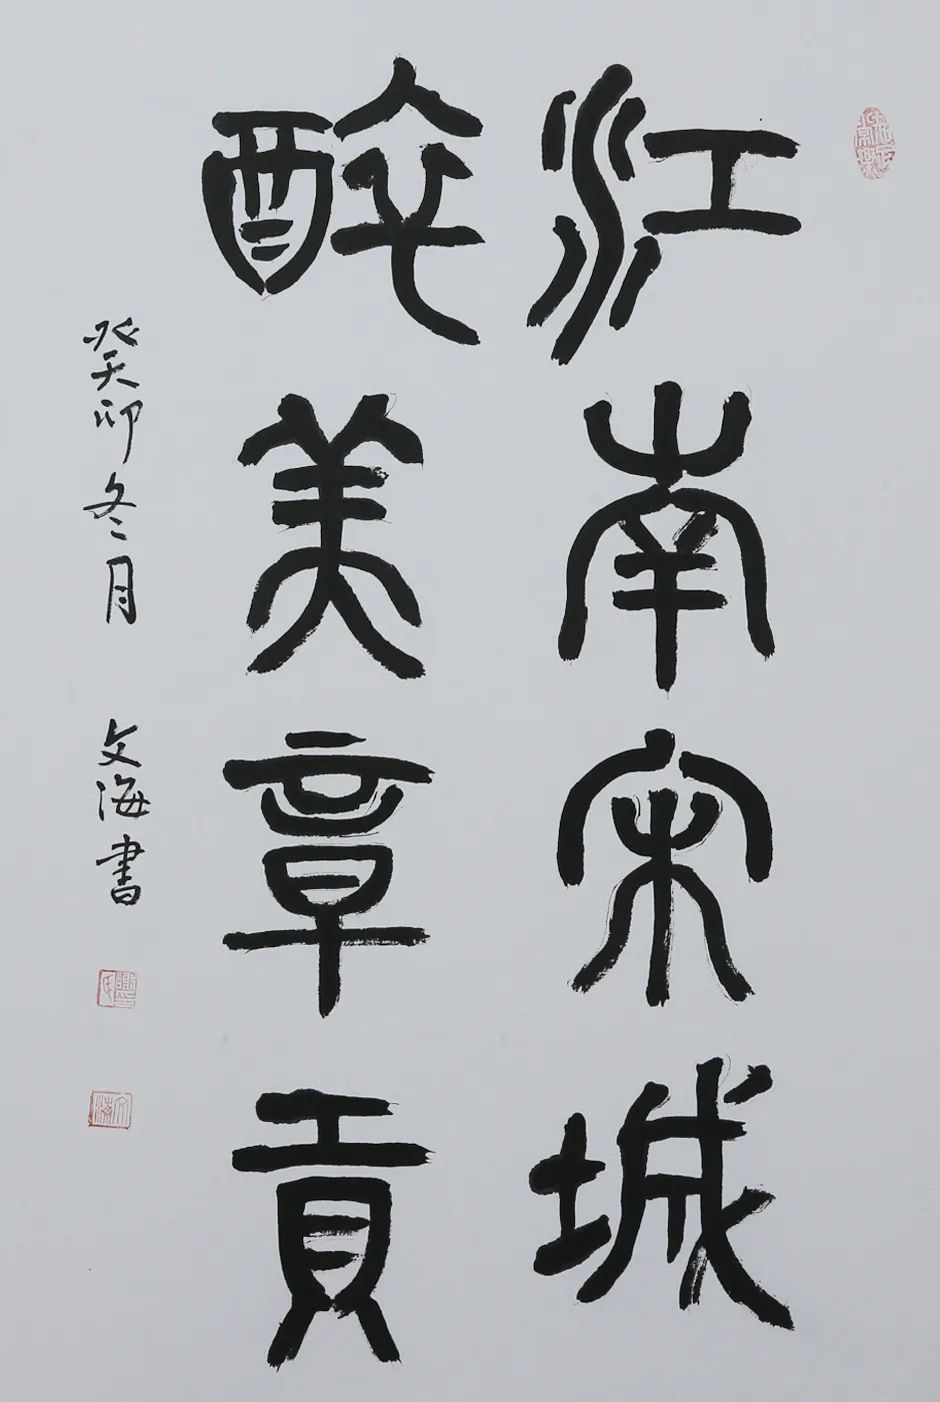 江南宋城
醉美章贡
癸卯冬月 文海書